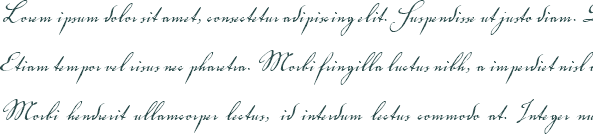 Lorem ipsum dolor sit amet, consectetur adipiscing elit. Suspendisse ut justo diam.
Etiam tempor vel risus nec pharetra. Morbi fringilla luctus nibh, a imperdiet nisl
Morbi hendrerit ullamcorper lectus, id interdum lectus commodo at. Integer